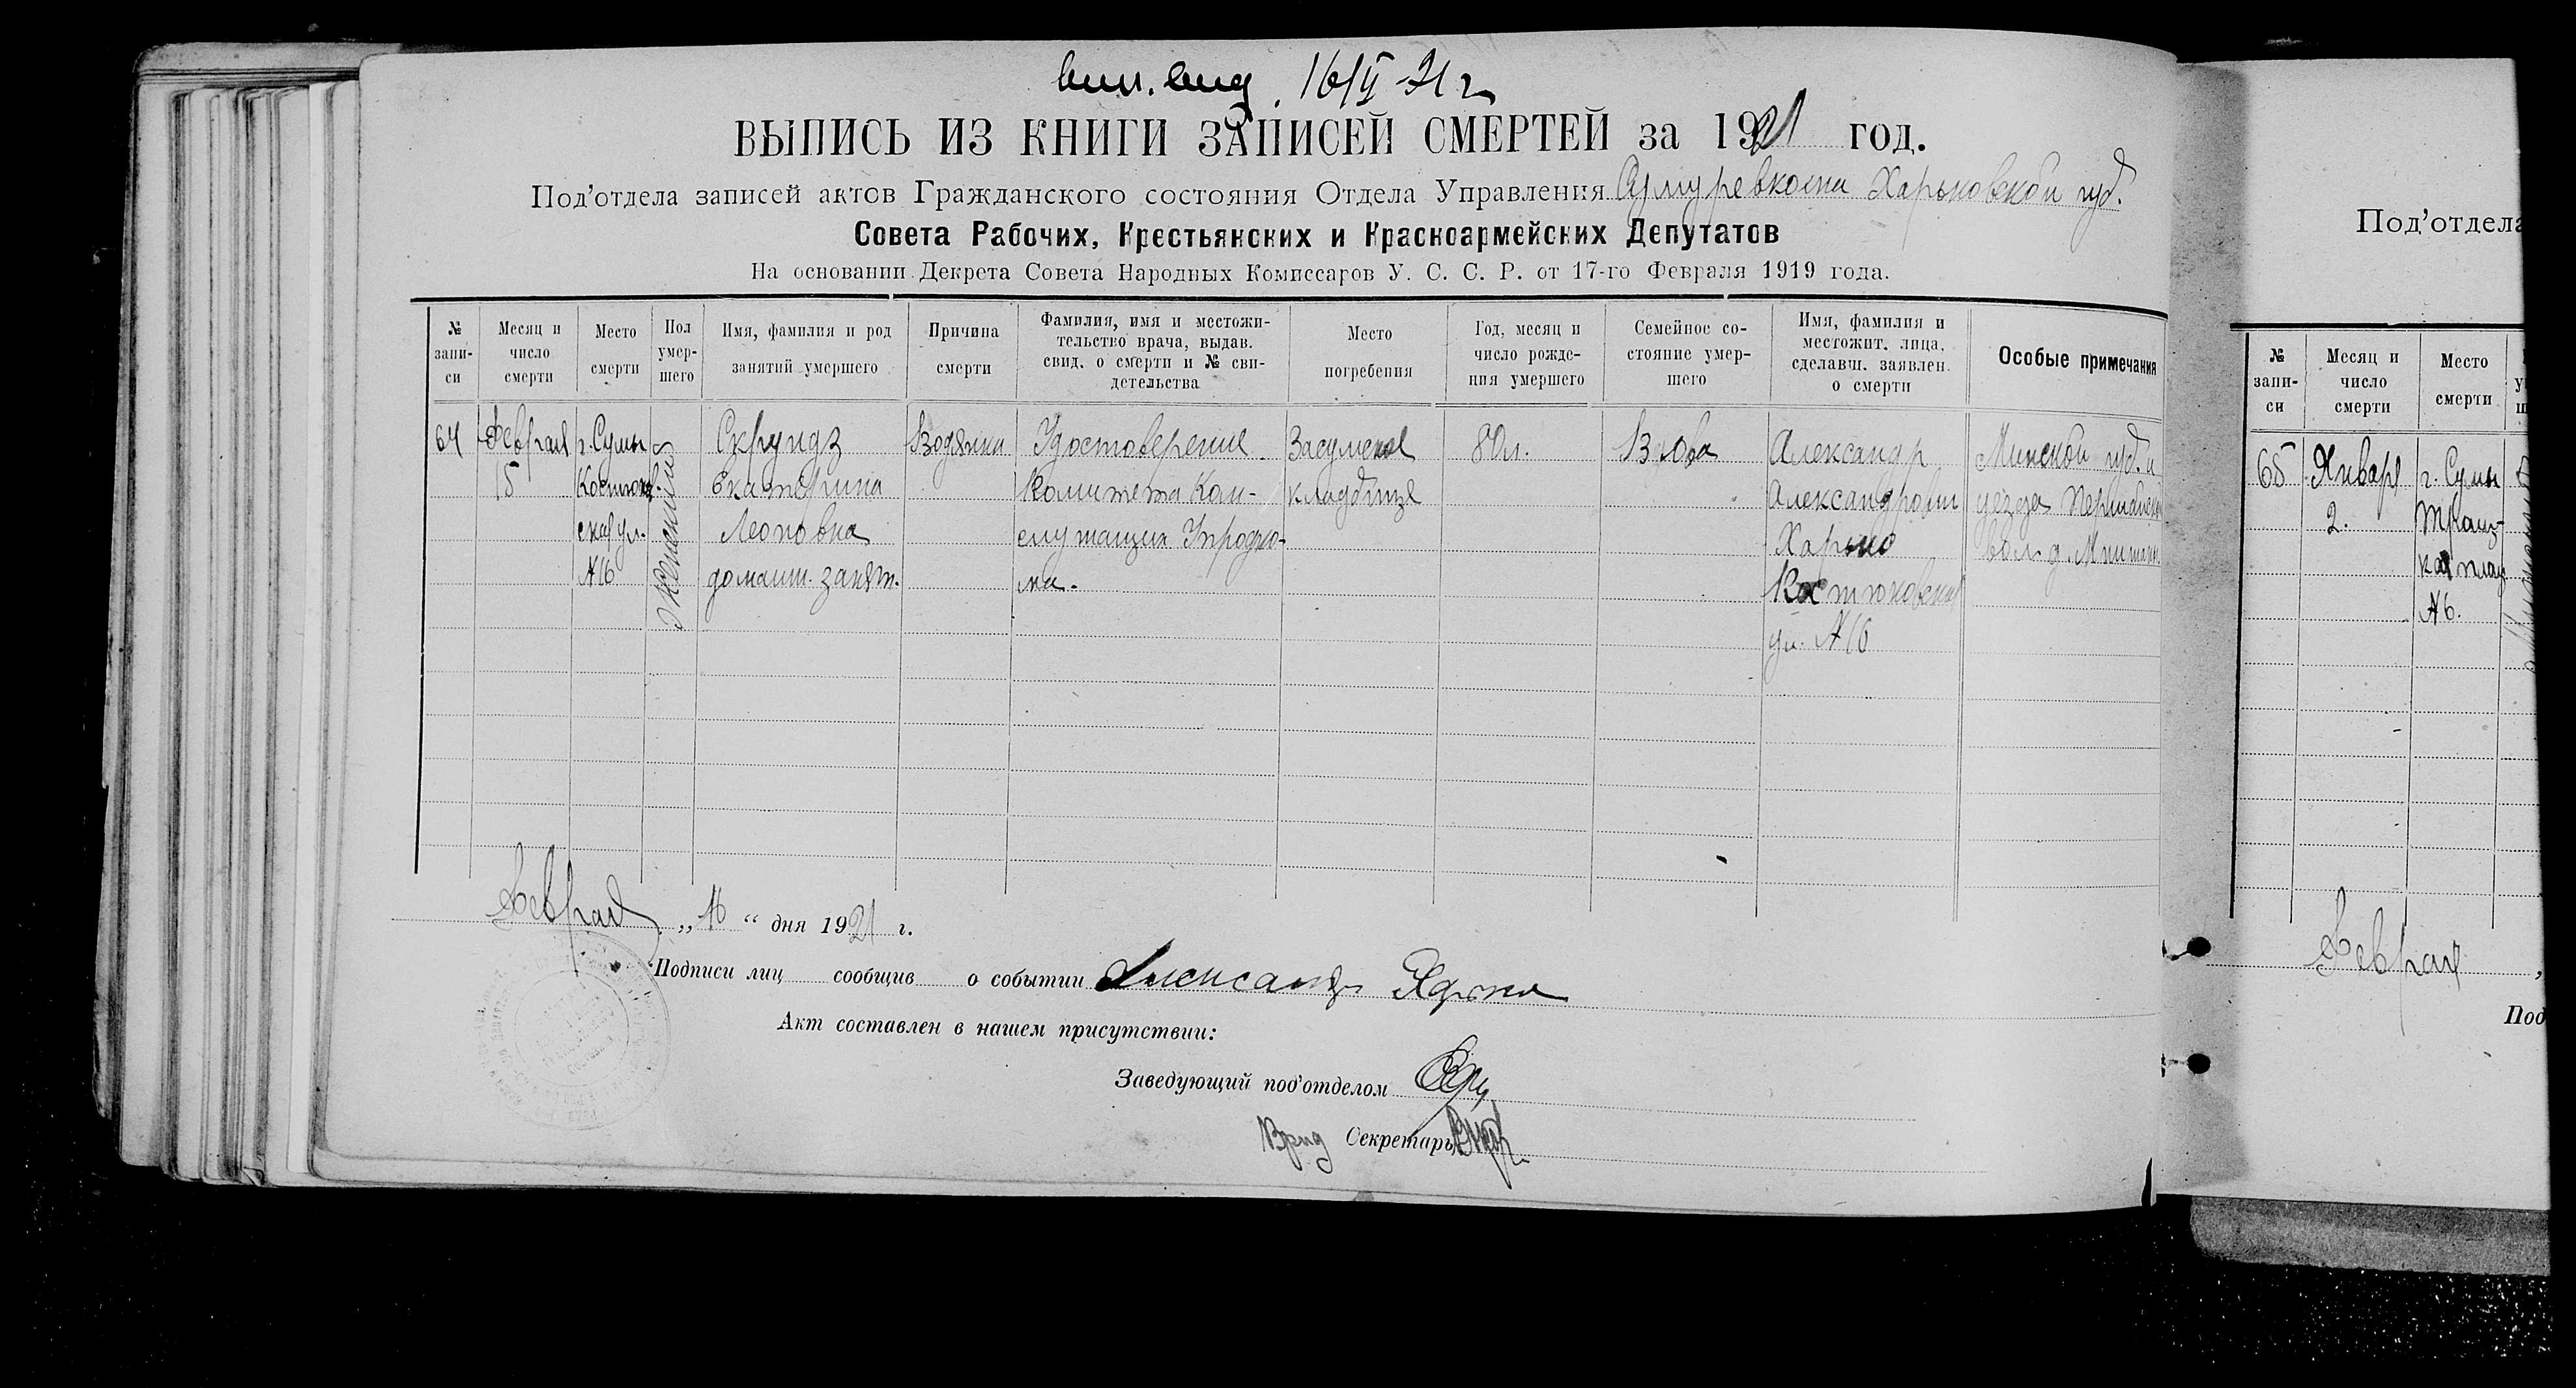 вып. выд. 16/II-21 г
ВЫПИСЬ ИЗ КНИГИ ЗАПИСЕЙ СМЕРТЕЙ за 1921 год.
Под'отдела записей актов Гражданского состояния Отдела Управления Сумуревкома Харьковской губ.
Совета Рабочих, Крестьянских и Красноармейских Депутатов
На основании Декрета Совета Народных Комиссаров У. С. С. Р. от 17-го Февраля 1919 года.
№ запи-
си
Месяц и
число
смерти
Место
смерти
Пол
умер-
шего
Имя, фамилия и род
занятий умершего
Причина
смерти
Фамилия, имя и местожи-
тельство врача, выдав.
свид. о смерти и № сви-
детельства
Место
погребения
Год, месяц и
число рожде-
ния умершего
Семейное со-
стояние умер-
шего
Имя, фамилия и
местожит. лица,
сделавш. заявлен.
о смерти
Особые примечания
64
Февраля
15
г. Сумы
Костюков-
ская ул.
№16
Женский
Скрундз
Екатерина
Леоновна
домашн. занят.
Водянка
Удостоверение
Комитета
служащих
Засумское
кладбище
80 л.
Вдова
Александр
Александрович
Харько
Костюковская
ул. №16
Минской губ. и
уезда
вол. д.
Февраля „16“ дня 1921 г.
Подписи лиц сообщив о событии Александр Харько
Акт составлен в нашем присутствии:
Заведующий под'отделом
Врид Секретарь
Под'отдела
№
запи-
си
Месяц и
число
смерти
Место
смерти
65
Января
2.
г. Сумы
№6.
Февраля
Под